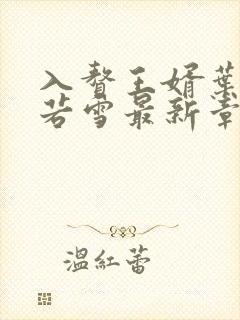 入赘王婿葉
若雪最新章
温紅蕾